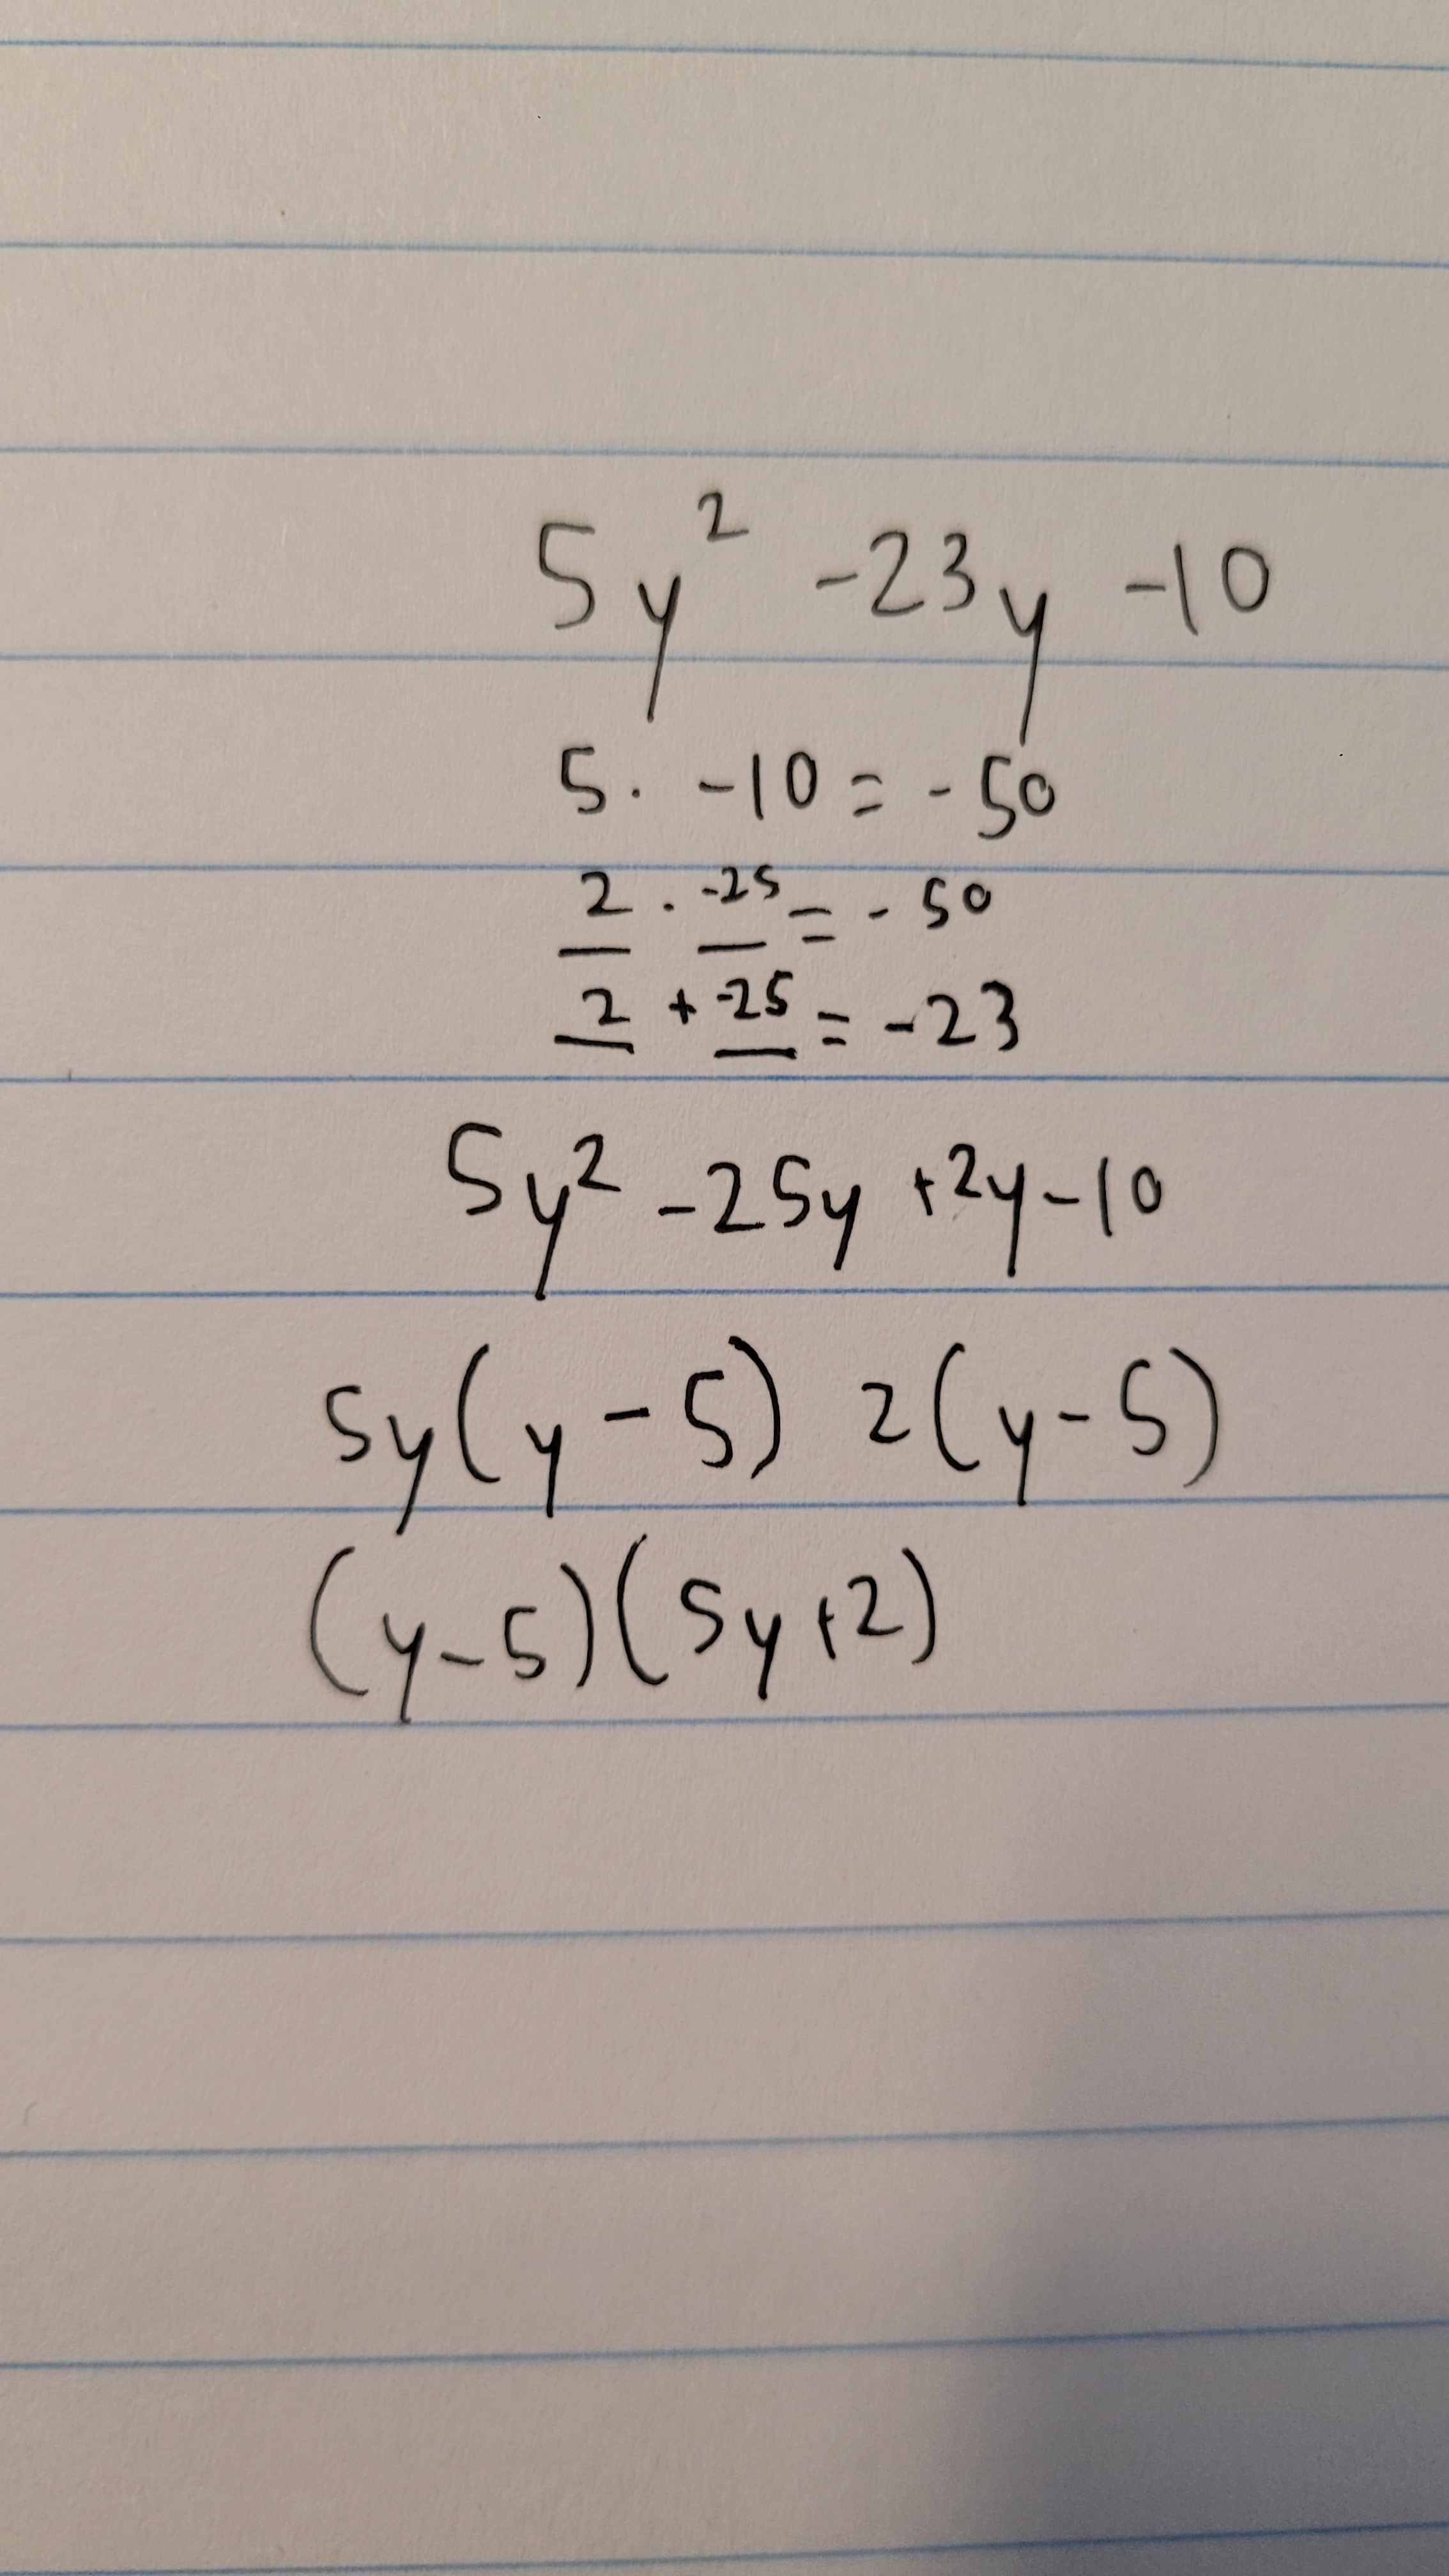 5y² -23y -10
5. -10 = -50
2 . -25 = -50
2 + -25 = -23
5y² -25y +2y -10
5y(y-5) 2(y-5)
(y-5)(5y+2)